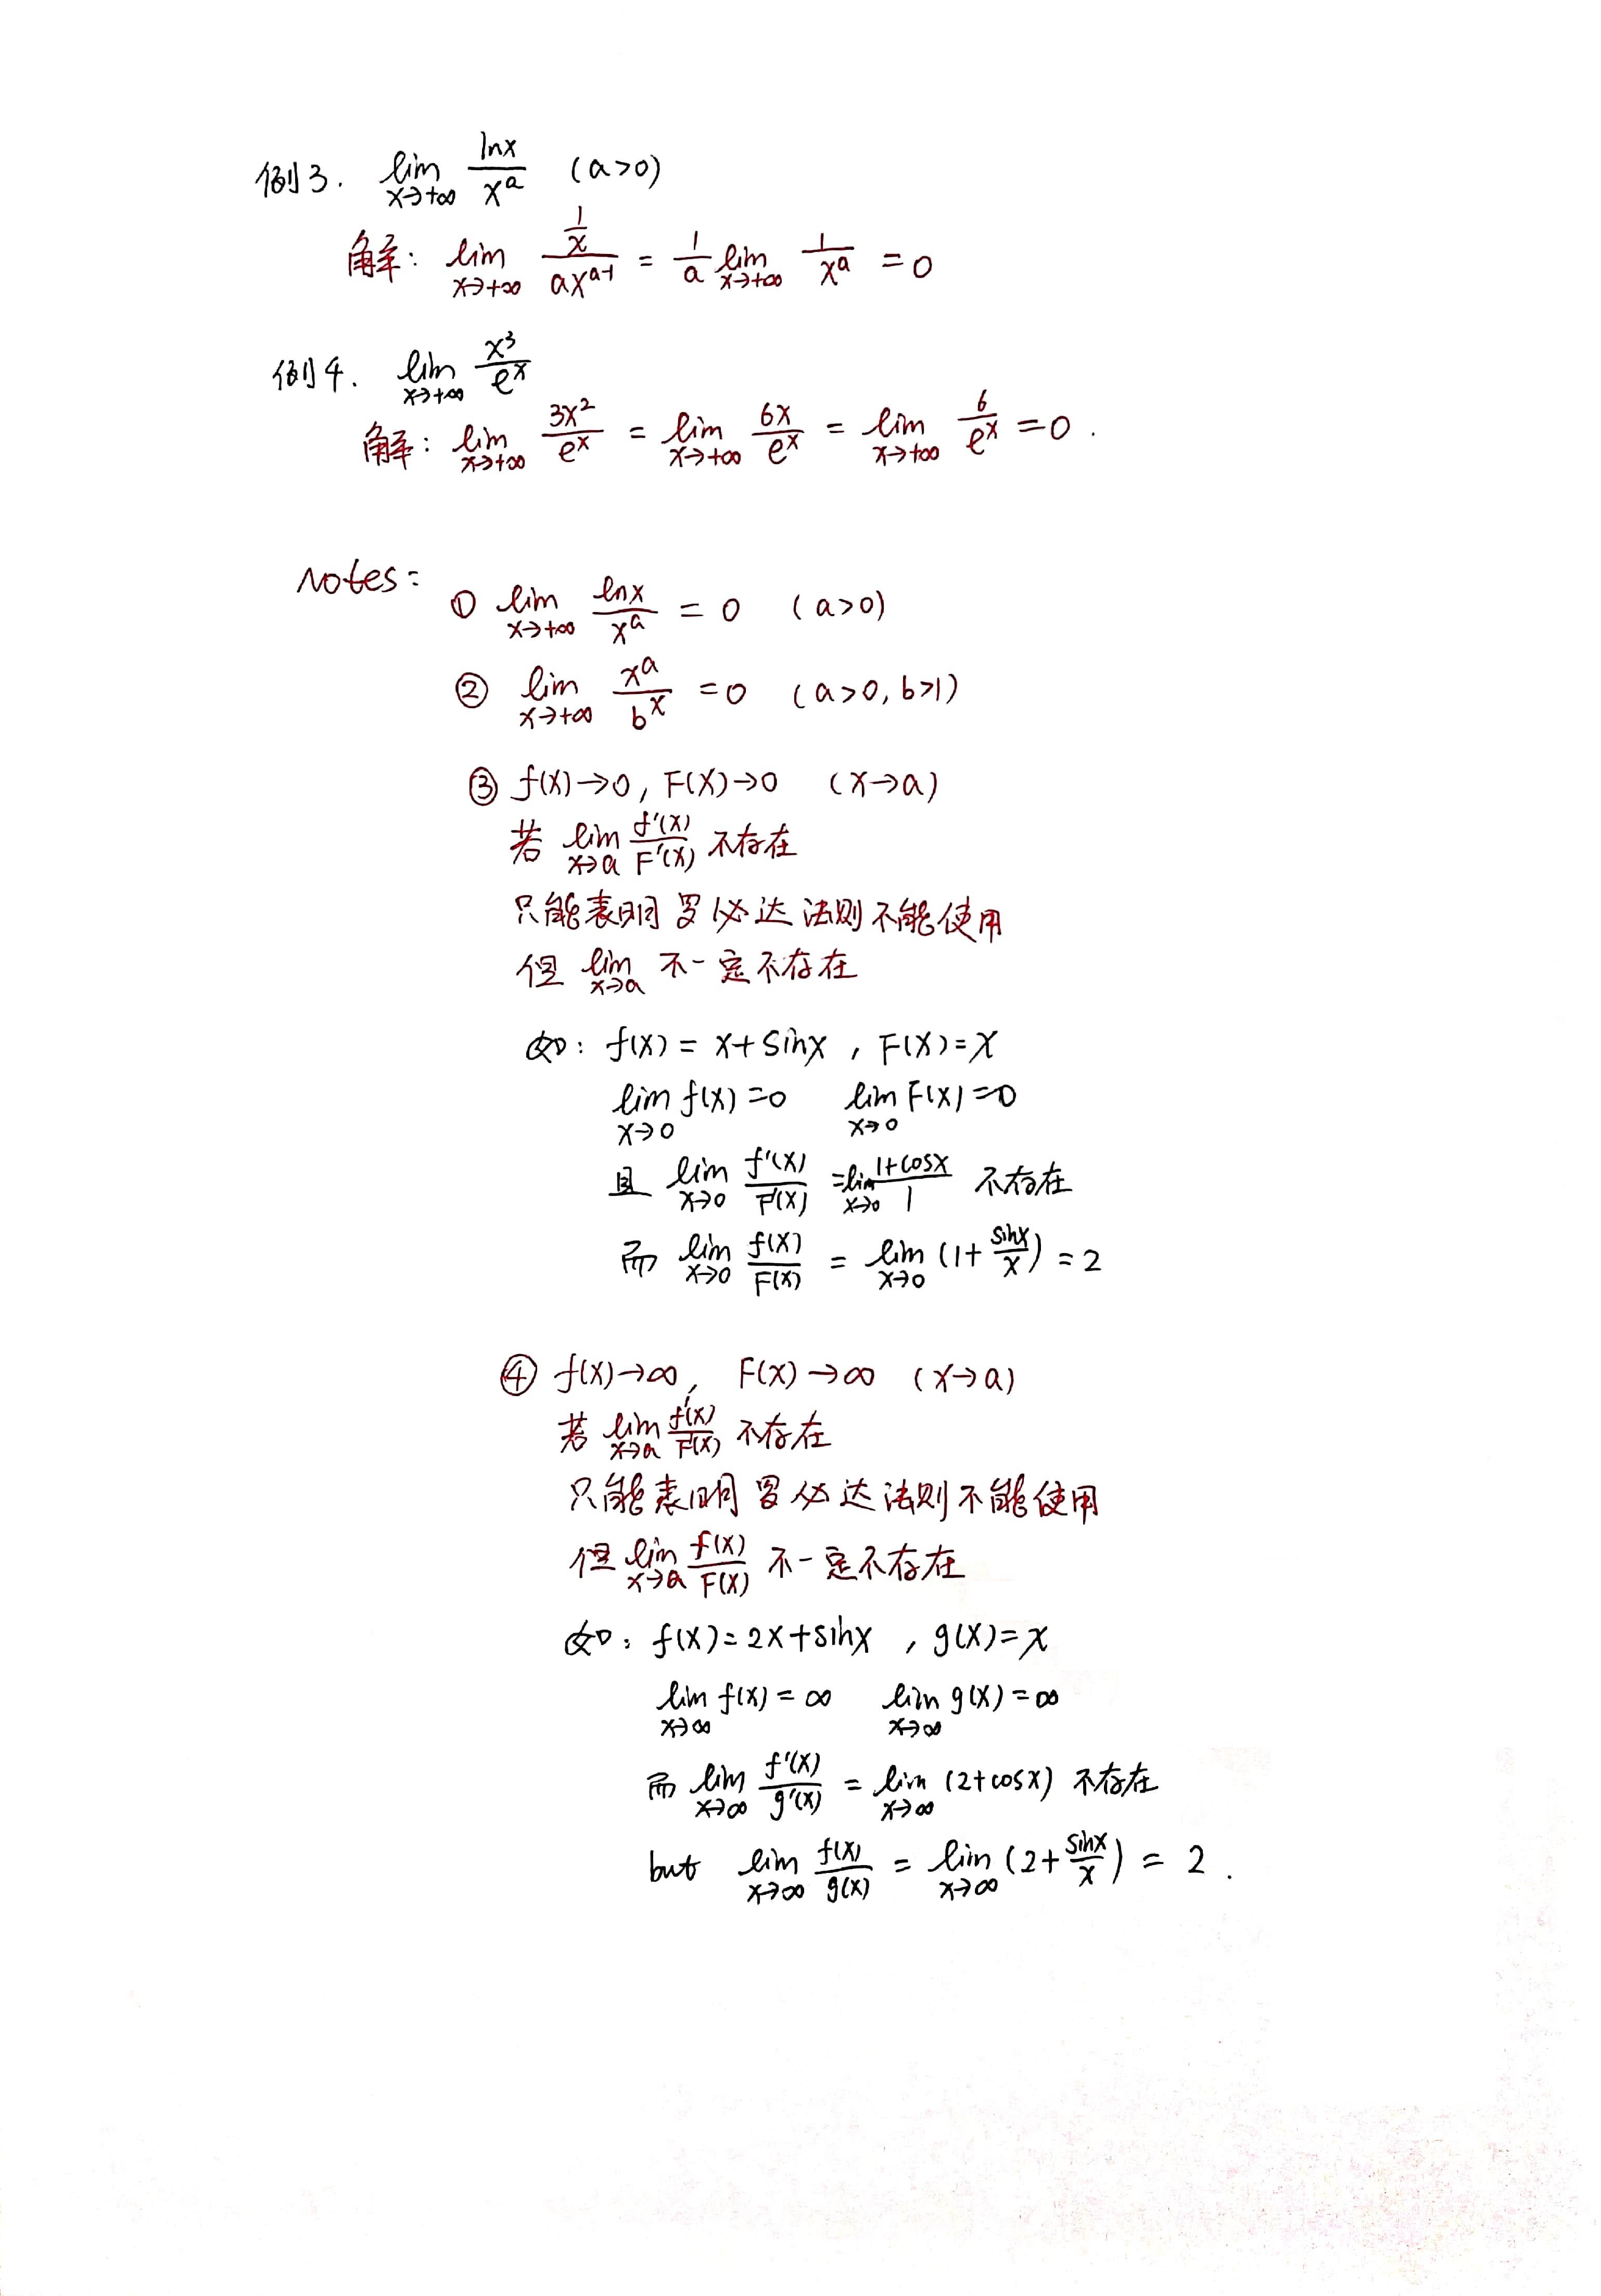 例3. lim_{x→+∞} lnx/x^a (a>0)
解: lim_{x→+∞} (1/x)/(ax^{a-1}) = 1/a lim_{x→+∞} 1/x^a = 0
例4. lim_{x→+∞} x^3/e^x
解: lim_{x→+∞} 3x^2/e^x = lim_{x→+∞} 6x/e^x = lim_{x→+∞} 6/e^x = 0.
Notes:
① lim_{x→+∞} lnx/x^a = 0 (a>0)
② lim_{x→+∞} x^a/b^x = 0 (a>0, b>1)
③ f(x)→0, F(x)→0 (x→a)
若 lim_{x→a} f'(x)/F'(x) 不存在
只能表明罗必达法则不能使用
但 lim_{x→a} 不一定不存在
如: f(x) = x+sinx, F(x)=x
lim_{x→0} f(x)=0 lim_{x→0} F(x)=0
且 lim_{x→0} f'(x)/F'(x) = lim_{x→0} (1+cosx)/1 不存在
而 lim_{x→0} f(x)/F(x) = lim_{x→0} (1+sinx/x) = 2
④ f(x)→∞, F(x)→∞ (x→a)
若 lim_{x→a} f'(x)/F'(x) 不存在
只能表明罗必达法则不能使用
但 lim_{x→a} f(x)/F(x) 不一定不存在
如: f(x)=2x+sinx, g(x)=x
lim_{x→∞} f(x)=∞ lim_{x→∞} g(x)=∞
而 lim_{x→∞} f'(x)/g'(x) = lim_{x→∞} (2+cosx) 不存在
but lim_{x→∞} f(x)/g(x) = lim_{x→∞} (2+sinx/x) = 2.